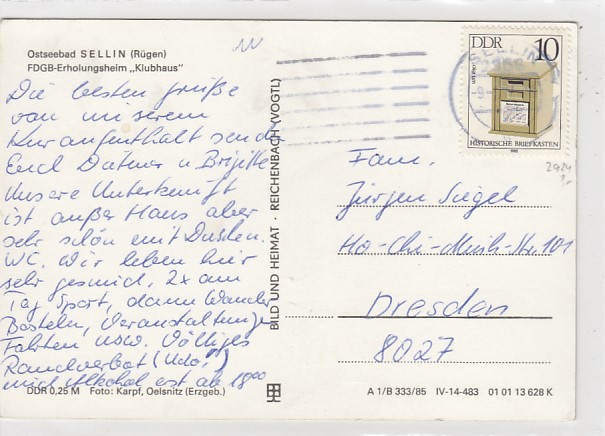 Ostseebad SELLIN (Rügen)
FDGB-Erholungsheim „Klubhaus"
Die besten Grüße
von unserem
Kuraufenthalt senden
Euch Dätmer u Brigitte
Unsere Unterkunft
ist außer Haus aber
sehr schön mit Duschen.
WC. Wir leben hier
sehr gesund, 2x am
Tag Sport, dann Wandern
Basteln, Veranstaltung,
Fahrten usw. Völliges
Rauchverbot (Udo!")
und Alkohol erst ab 18⁰⁰
DDR 0,25 M Foto: Karpf, Oelsnitz (Erzgeb.)
BILD UND HEIMAT · REICHENBACH (VOGTL)
DDR 10
HISTORISCHE BRIEFKASTEN
1985
SELLIN
Fam.
Jürgen Siegel
Ho-Chi-Minh-Str. 101
Dresden
8027
A 1/B 333/85 IV-14-483 01 01 13 628 K